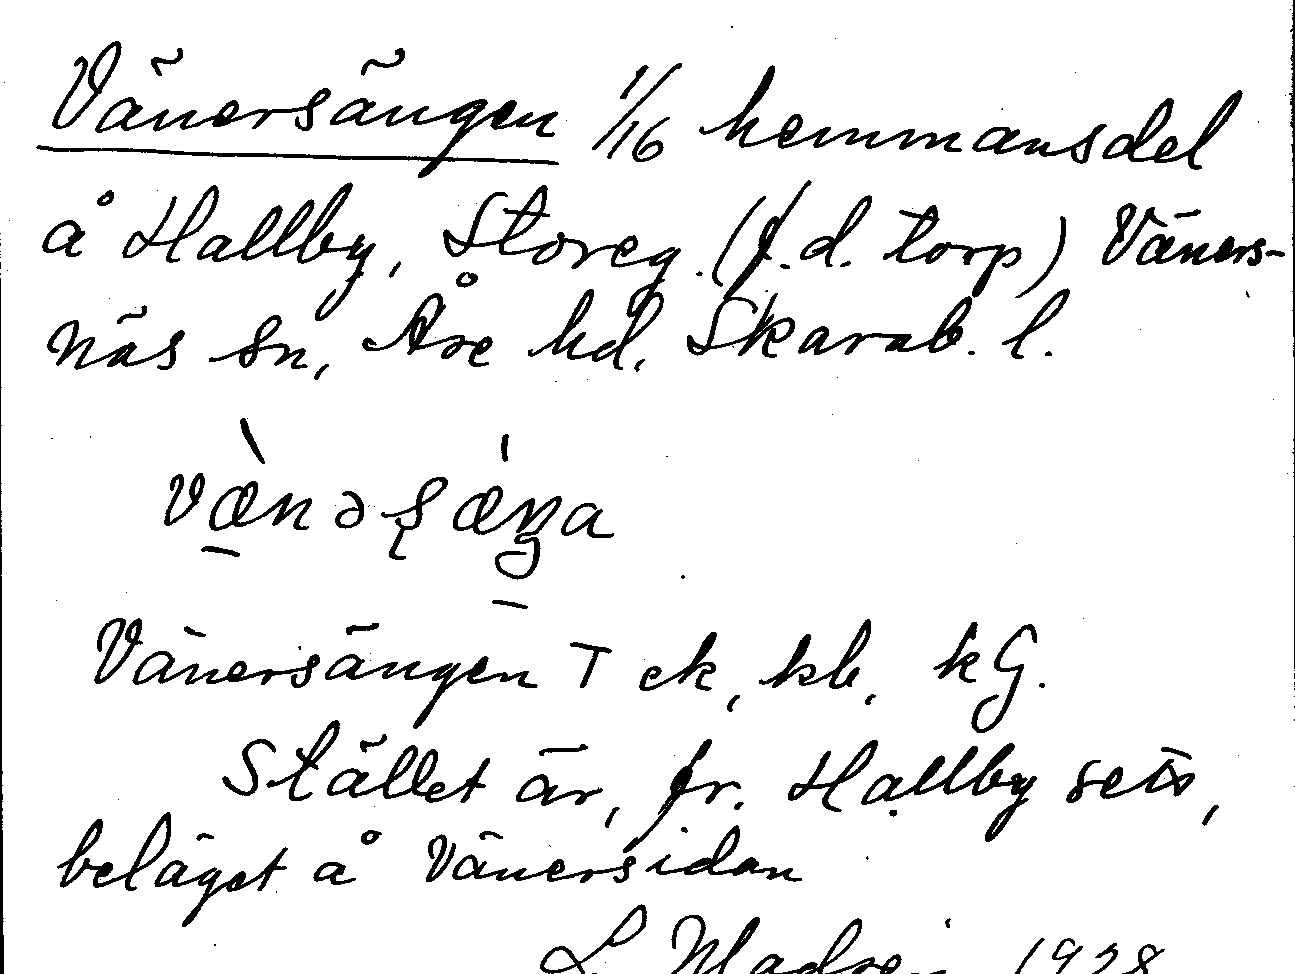 Vänersängen 1/16 hemmansdel
å Hallby, Storeg. (f.d. torp) Väners-
näs sn, Åse hd. Skarab. l.
Vänersängen T ek, kb, kG.
Stället är, fr. Hallby sett,
beläget å Vänersidan
L. 1928